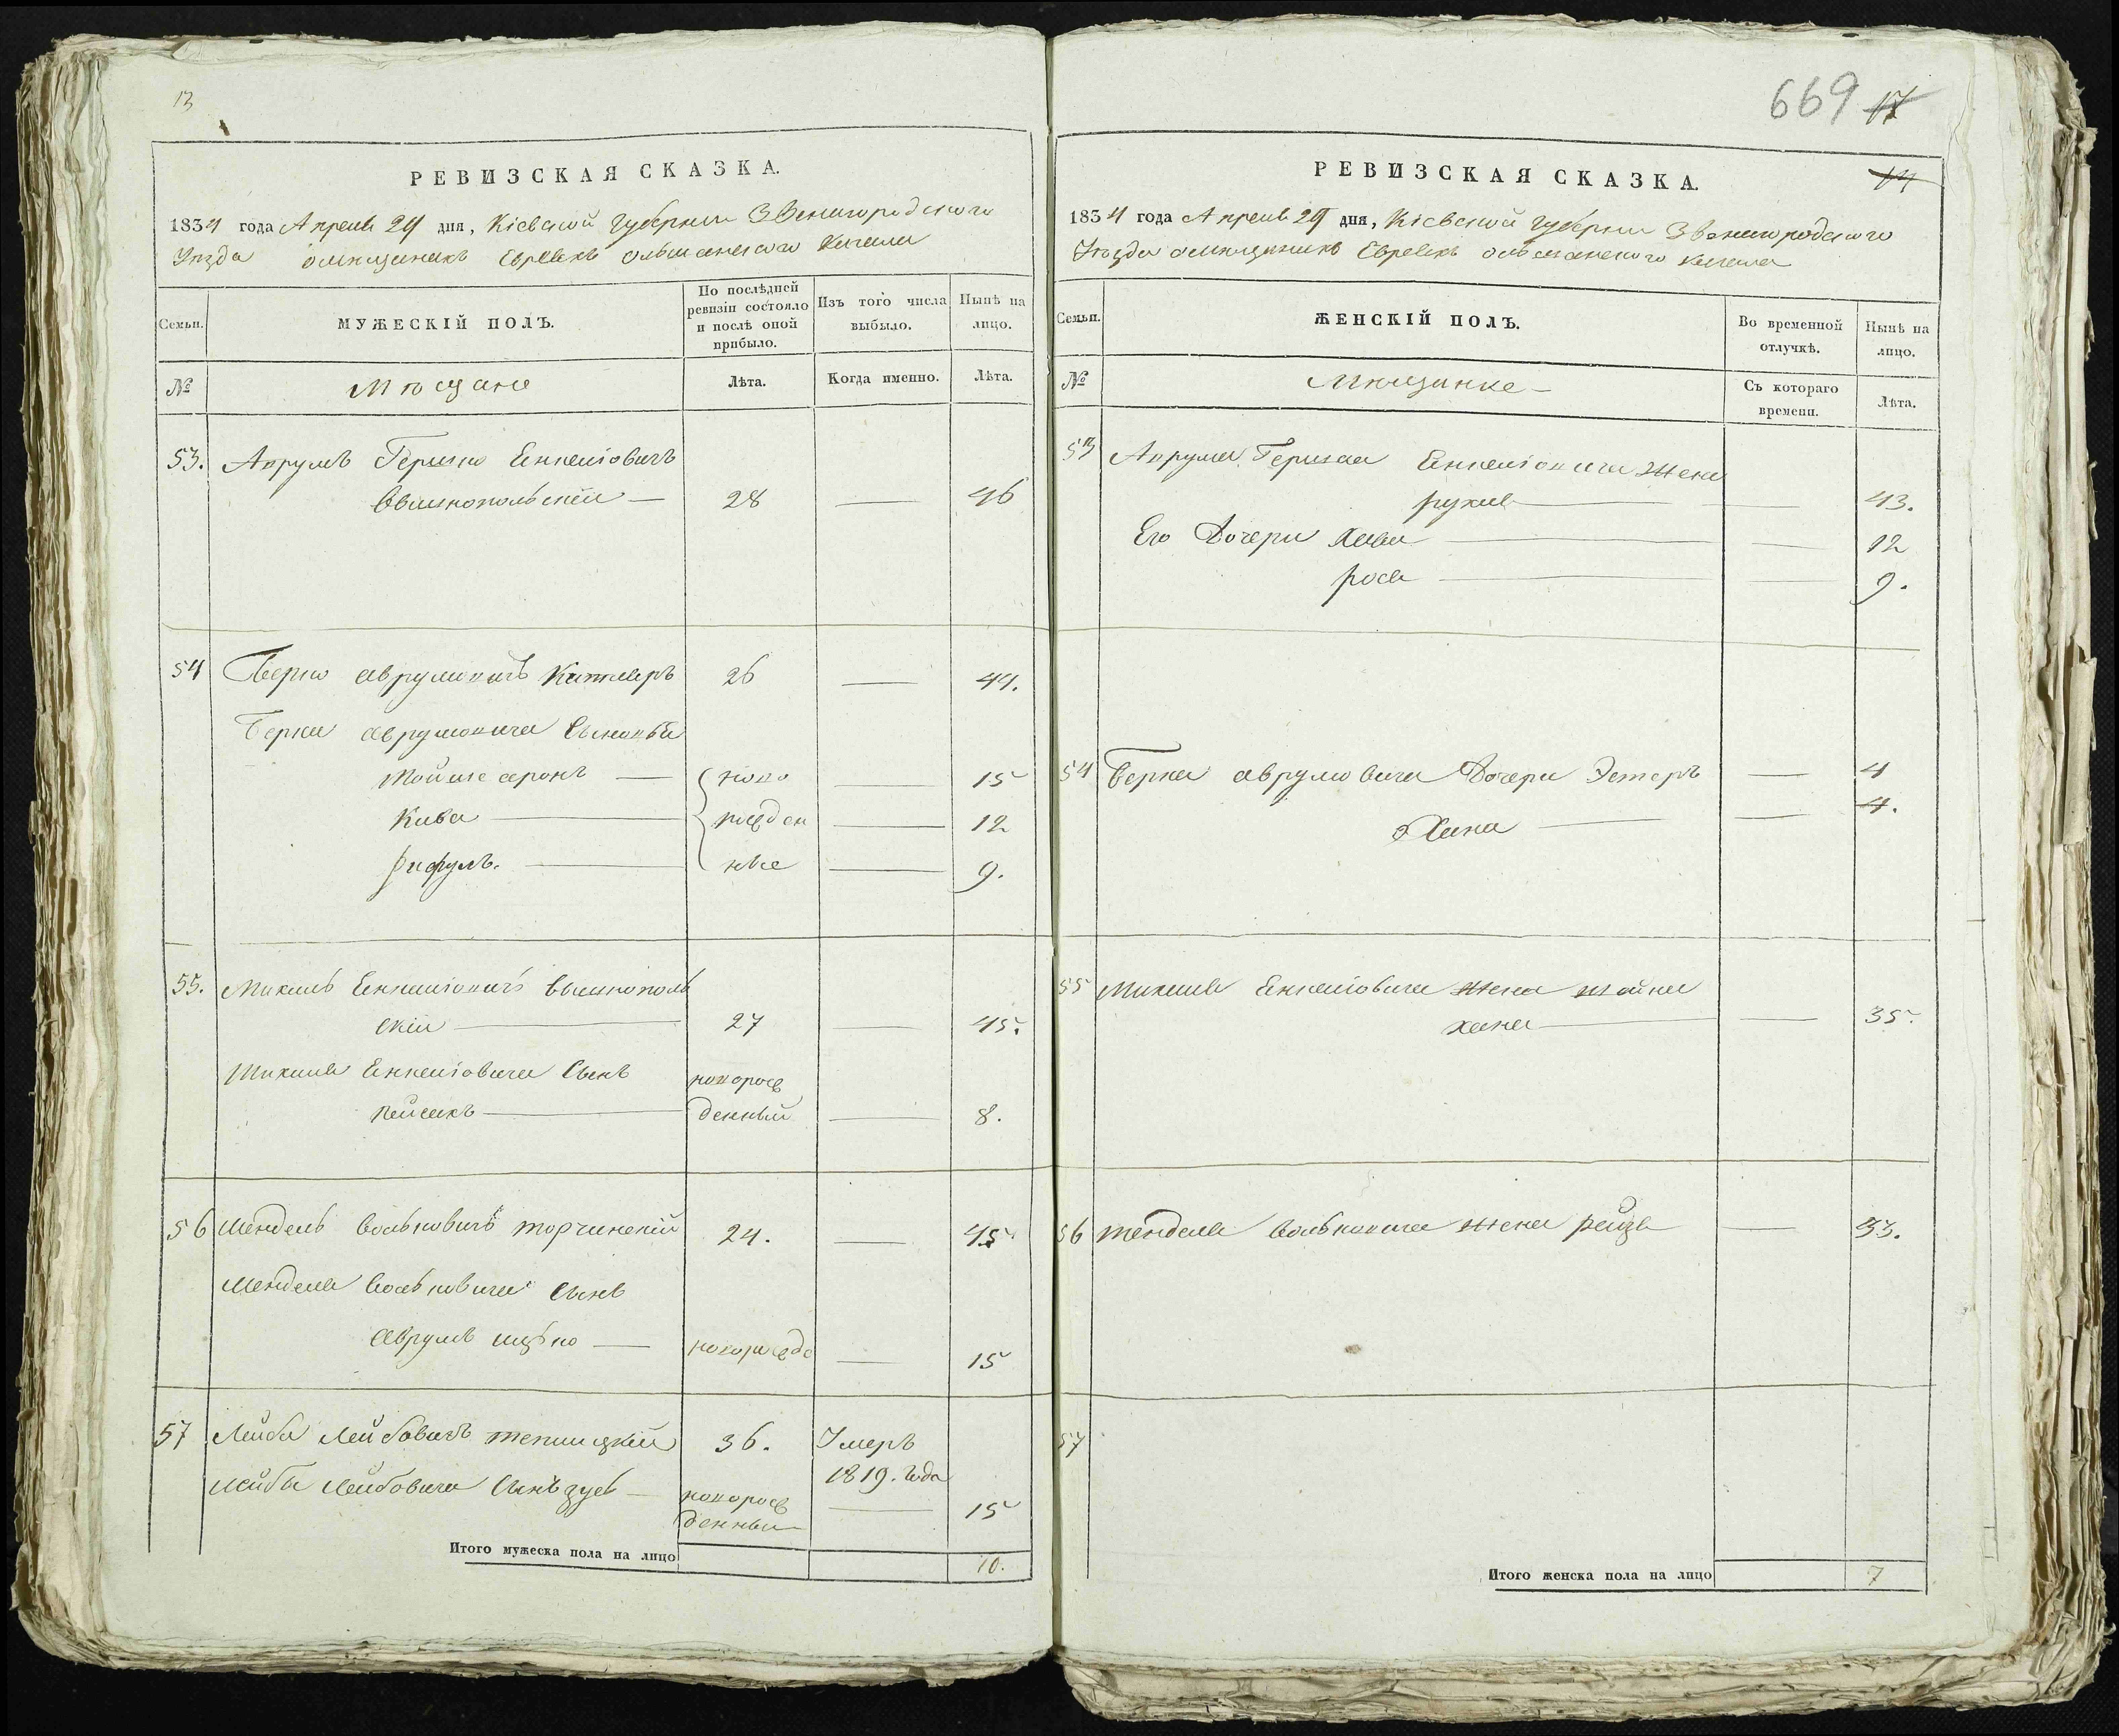 13
РЕВИЗСКАЯ СКАЗКА.
1834 года Апреля 29 дня, Кіевской Губерніи Звенигородского
Уезда о мещанахъ Евреяхъ Ольшанского Кагала
Семьи.
МУЖЕСКІЙ ПОЛЪ.
По послѣдней ревизіи состояло и послѣ оной прибыло.
Изъ того числа выбыло.
Нынѣ на лицо.
№
Мещане
Лѣта.
Когда именно.
Лѣта.
53. Аврумъ Гершко Енкелiовичъ
Вышнопольскій — 28 — 46
54 Берко Аврумовичъ 26 — 44.
Берка Аврумовича Сыновья
Мойше аронъ — ново — 15
Кива — рожден — 12
ные — 9.
55. Михель Енкелiовичъ Вышнополь
скій — 27 — 45.
Михеля Енкелiовича Сынъ новорож
Пейсахъ — денный — 8.
56 Мендель Волковичъ Торчинскій 24. — 45
Менделя Волковича Сынъ
Аврумъ Ицько — новорожде — 15
57 Лейба Лейбовичъ 36. Умеръ
1819. Года
Лейбы Лейбовича Сынъ Зусь — новорож
денный — 15
Итого мужеска пола на лицо 10.
669 17
14
РЕВИЗСКАЯ СКАЗКА.
1834 года Апреля 29 дня, Кіевской Губерніи Звенигородского
Уезда о мещанахъ Евреяхъ Ольшанского Кагала
Семьи.
ЖЕНСКІЙ ПОЛЪ.
Во временной отлучкѣ.
Нынѣ на лицо.
№
Мещанке
Съ котораго времени.
Лѣта.
53 Аврума Гершка Енкелiовича Жена
рухля — — 43.
Его Дочери Хава — — 12
рося — — 9.
54 Берка Аврумовича Дочери Эстеръ — 4
Хана — — 4.
55 Михеля Енкелiовича Жена шайна
хана — — 35.
56 Менделя Волковича жена рейзя — 33.
57
Итого женска пола на лицо 7